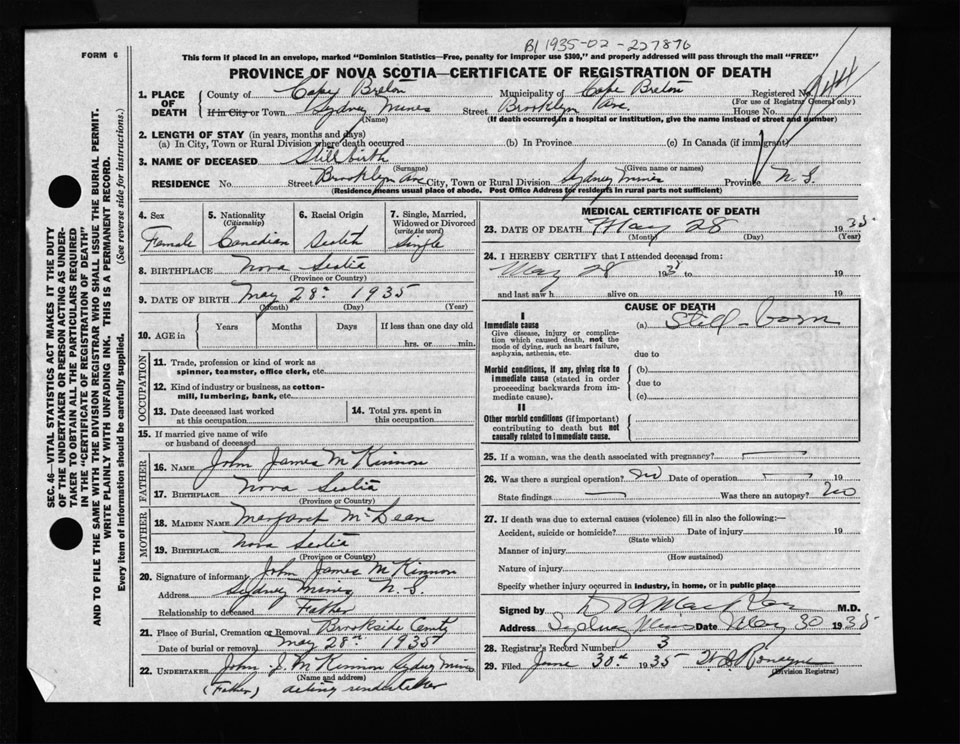 BI 1935-02-227876
FORM 6
This form if placed in an envelope, marked "Dominion Statistics—Free, penalty for improper use $300," and properly addressed will pass through the mail "FREE"
PROVINCE OF NOVA SCOTIA—CERTIFICATE OF REGISTRATION OF DEATH
1. PLACE OF DEATH
County of Cape Breton Municipality of Cape Breton Registered No.
(For use of Registrar General only)
If in City or Town Sydney Mines Street Brooklyn Ave. House No.
(Name) (If death occurred in a hospital or institution, give the name instead of street and number)
2. LENGTH OF STAY (in years, months and days)
(a) In City, Town or Rural Division where death occurred (b) In Province (c) In Canada (if immigrant)
3. NAME OF DECEASED Stillbirth
(Surname) (Given name or names)
RESIDENCE No. Street Brooklyn Ave City, Town or Rural Division Sydney Mines Province N.S.
(Residence means usual place of abode. Post Office Address for residents in rural parts not sufficient)
4. Sex Female
5. Nationality (Citizenship) Canadian
6. Racial Origin Scotch
7. Single, Married, Widowed or Divorced (write the word) Single
8. BIRTHPLACE Nova Scotia
(Province or Country)
9. DATE OF BIRTH May 28th 1935
(Month) (Day) (Year)
10. AGE in Years Months Days If less than one day old
hrs. or min.
OCCUPATION
11. Trade, profession or kind of work as
spinner, teamster, office clerk, etc.
12. Kind of industry or business, as cotton-
mill, lumbering, bank, etc.
13. Date deceased last worked
at this occupation
14. Total yrs. spent in
this occupation
15. If married give name of wife
or husband of deceased
FATHER
16. NAME John James McKinnon
17. BIRTHPLACE Nova Scotia
(Province or Country)
MOTHER
18. MAIDEN NAME Margaret McLean
19. BIRTHPLACE Nova Scotia
(Province or Country)
20. Signature of informant John James McKinnon
Address Sydney Mines N.S.
Relationship to deceased Father
21. Place of Burial, Cremation or Removal Brookside Cemty
Date of burial or removal May 28th 1935
22. UNDERTAKER John J. McKinnon Sydney Mines
(Name and address)
(Father) acting undertaker
MEDICAL CERTIFICATE OF DEATH
23. DATE OF DEATH May 28 1935
(Month) (Day) (Year)
24. I HEREBY CERTIFY that I attended deceased from:
May 28 1935 to 19
and last saw h alive on 19
CAUSE OF DEATH
I
Immediate cause
Give disease, injury or complica-
tion which caused death, not the
mode of dying, such as heart failure,
asphyxia, asthenia, etc.
(a) Still-born
due to
Morbid conditions, if any, giving rise to
immediate cause (stated in order
proceeding backwards from im-
mediate cause).
(b)
due to
(c)
II
Other morbid conditions (if important)
contributing to death but not
causally related to immediate cause.
25. If a woman, was the death associated with pregnancy?
26. Was there a surgical operation? no Date of operation 19
State findings Was there an autopsy? no
27. If death was due to external causes (violence) fill in also the following:—
Accident, suicide or homicide? Date of injury 19
(State which)
Manner of injury
(How sustained)
Nature of injury
Specify whether injury occurred in industry, in home, or in public place
Signed by M.D.
Address Sydney Mines Date May 30 1935
28. Registrar's Record Number 3
29. Filed June 30th 1935
(Division Registrar)
SEC. 46—VITAL STATISTICS ACT MAKES IT THE DUTY
OF THE UNDERTAKER OR PERSON ACTING AS UNDER-
TAKER TO OBTAIN ALL THE PARTICULARS REQUIRED
IN THE "CERTIFICATE OF REGISTRATION OF DEATH"
AND TO FILE THE SAME WITH THE DIVISION REGISTRAR WHO SHALL ISSUE THE BURIAL PERMIT.
WRITE PLAINLY WITH UNFADING INK. THIS IS A PERMANENT RECORD.
Every item of information should be carefully supplied. (See reverse side for instructions.)